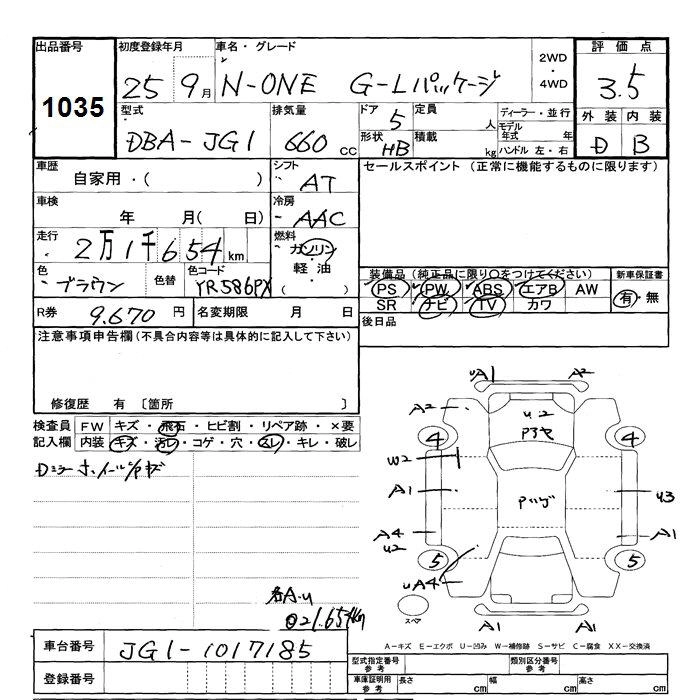 出品番号 初度登録年月 車名・グレード 2WD ・ 4WD 評価点
1035 25 9月 N-ONE G-Lパッケージ 3.5
型式 排気量 ドア 定員 ディーラー・並行 外装 内装
DBA-JG1 660 CC 5 人 モデル年式 年 D B
形状 HB 積載 kg ハンドル 左・右
車歴 シフト セールスポイント (正常に機能するものに限ります)
自家用・( ) AT
車検 冷房
年 月( 日) AAC
走行 燃料
2万1千654km ガソリン・軽油 ( )
色 色替 色コード 装備品 (純正品に限り○をつけてください) 新車保証書
ブラウン YR586PX PS PW ABS エアB AW 有・無
SR ナビ TV カワ
R券 9.670円 名変期限 月 日 後日品
注意事項申告欄(不具合内容等は具体的に記入して下さい)
修復歴 有 〔箇所 〕
検査員 FW キズ・飛石・ヒビ割・リペア跡・×要
記入欄 内装 キズ・汚レ・コゲ・穴・スレ・キレ・破レ
uA1 A2
A2 u2
4 4
W2
A1 u3
A4 A1
u2
5 5
uA4
スペア
A1 A1
各A.u
021.654km
A-キズ E-エクボ U-凹み W-補修跡 S-サビ C-腐食 XX-交換済
車台番号 JG1-1017185
登録番号
型式指定番号 参考 類別区分番号 参考
車庫証明用 参考 長さ cm 幅 cm 高さ cm